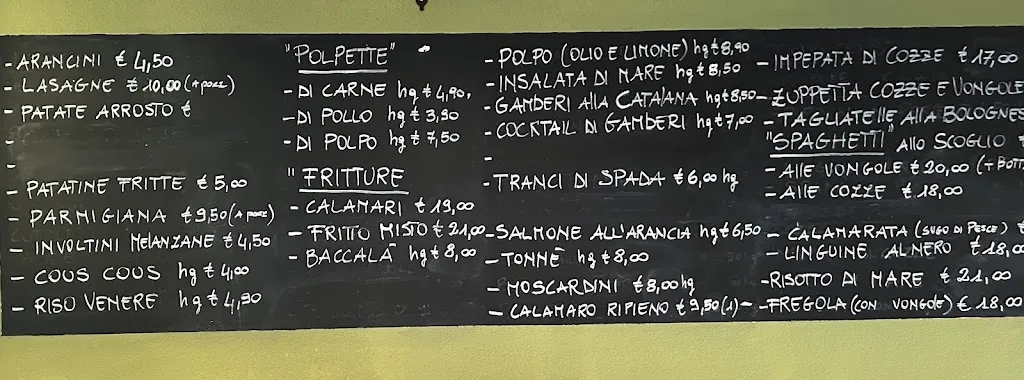 - ARANCINI € 4,50
- LASAGNE € 10,00 (1 porz)
- PATATE ARROSTO €
-
-
- PATATINE FRITTE € 5,00
- PARMIGIANA € 9,50 (1 porz)
- INVOLTINI MELANZANE € 4,50
- COUS COUS hg € 4,00
- RISO VENERE hg € 4,90
"POLPETTE"
- DI CARNE hg € 4,90,
- DI POLLO hg € 3,90
- DI POLPO hg € 7,50
"FRITTURE
- CALAMARI € 19,00
- FRITTO MISTO € 21,00
- BACCALÀ hg € 8,00
- POLPO (OLIO E LIMONE) hg € 8,90
- INSALATA DI MARE hg € 8,50
- GAMBERI AllA CATALANA hg € 8,50
- COCKTAIL DI GAMBERI hg € 7,00
-
- TRANCI DI SPADA € 6,00 hg
- SALMONE ALL'ARANCIA hg € 6,50
- TONNE hg € 8,00
- MOSCARDINI € 8,00 hg
- CALAMARO RIPIENO € 9,50 (1)
- IMPEPATA DI COZZE € 17,00
- ZUPPETTA COZZE E VONGOLE
- TAGLIATELLE AllA BOLOGNES
"SPAGHETTI" Allo SCOGLIO €
- AllE VONGOLE € 20,00 (+ BOTT
- AllE COZZE € 18,00
- CALAMARATA (SUGO DI PESCE) €
- LINGUINE AL NERO € 18,00
- RISOTTO DI MARE € 21,00
- FREGOLA (CON VONGOLE) € 18,00